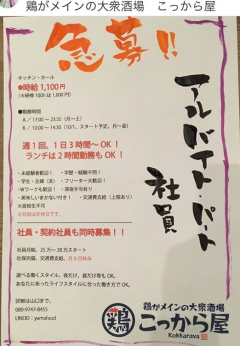 鶏がメインの大衆酒場 こっから屋
急募!!
アルバイト・パート
社員
キッチン・ホール
●時給 1,100円
(※研修 100h は 1,000円)
●勤務時間
A／17:00 ～ 23:30 (月～土)
B／10:00 ～ 14:30 (10/1、スタート予定、月～金)
週1回、1日3時間～OK！
ランチは2時間勤務もOK！
・未経験者歓迎！ ・学歴・経験不問！
・学生・主婦（夫）・フリーター大歓迎！
・Wワークも歓迎！ ・深夜手当有り
・美味しいまかない付き！ ・交通費支給（上限あり）
※高校生不可
※日祝は定休日です。
社員・契約社員も同時募集！！
社員月給、25万～28万スタート
社保完備、交通費支給、月8日休み
選べる働くスタイル、夜だけ、昼だけ等もOK。
あなたにあったライフスタイルに合った働き方でOK。
詳細は山口まで。
080-9747-8455
LINEID：yamafood
鶏がメインの大衆酒場
鶏 こっから屋
Kokkaraya